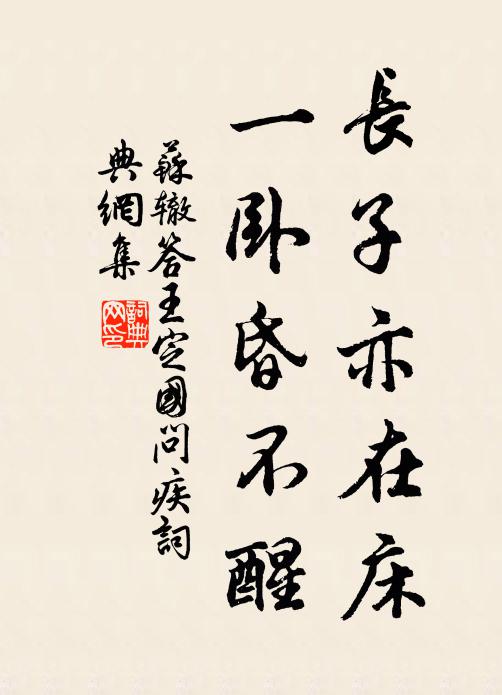 長子亦在床
一卧昏不醒
蘇辙答王定國問疾詞
典網集
詞典
网印